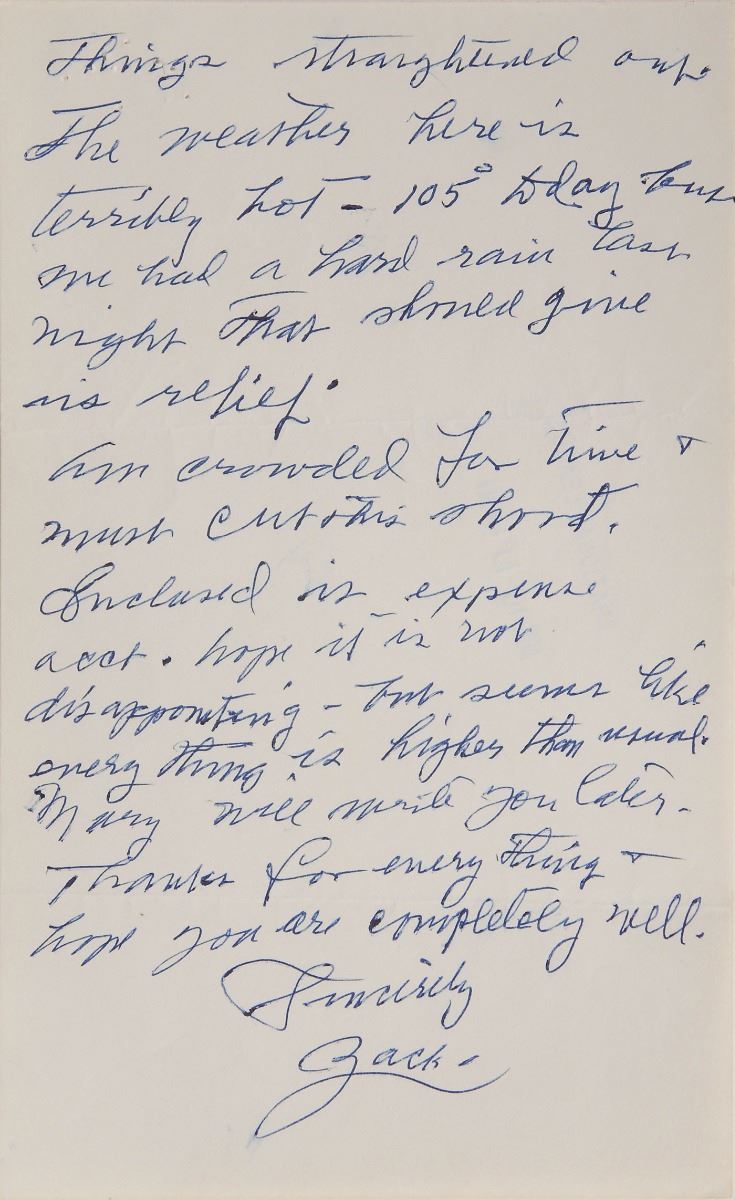 Things straightened out.
The weather here is
terribly hot - 105° today but
we had a hard rain last
night that should give
us relief.
Am crowded for time &
must cut this short.
Enclosed is expense
acct. hope it is not
disappointing - but seems like
every thing is higher than usual.
Mary will write you later.
Thanks for every thing &
hope you are completely well.
Sincerely
Zack.